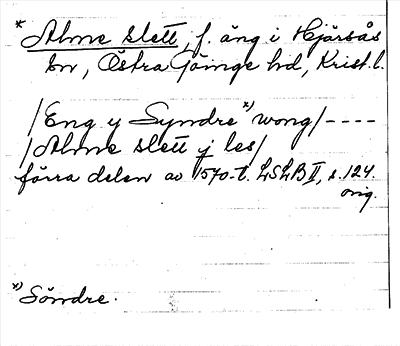 * Alme slett, f. äng i Hjärsås
sn, Östra Göinge hd, Krist. l.
/Eng y Syndre *) wong/ ----
/Alme slett j les/
förra delen av 1570-t. LSLB II, s. 124.
orig.
*) Söndre.